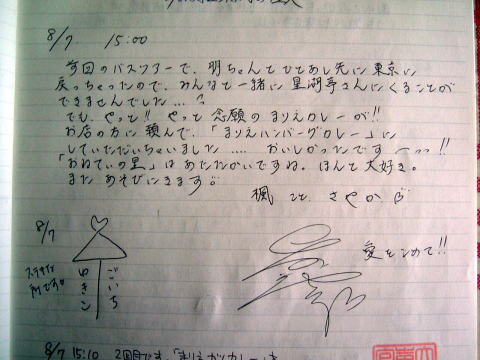 8/7 15:00
今回のバスツアーで、明ちゃんとひとあし先に東京に
戻っちゃったので、みんなと一緒に星湖亭さんにくることが
できませんでした…?
でも、やっと!! やっと念願のまりえカレーが!!
お店の方に頼んで、「まりえハンバーグカレー」に
していただいちゃいました…. おいしかったですーっっ!!
「おねてぃの里」はあたたかいですね。ほんと大好き。
またあそびにきます。
楓 こと さやか
8/7
ごいち
ゆきこ
愛をこめて!!
8/7 15:10 2回目です。「まりえカツカレー」を